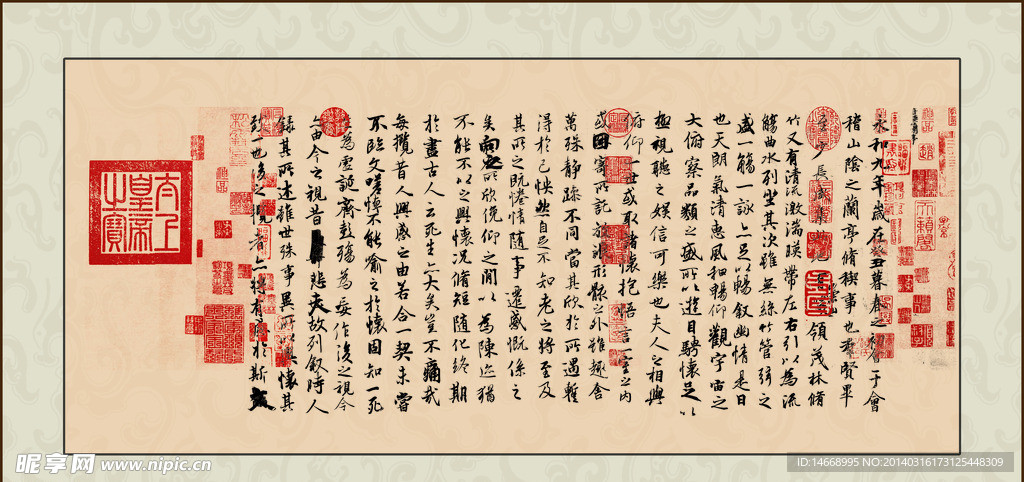 永和九年歲在癸丑暮春之初會于會
稽山陰之蘭亭脩稧事也羣賢畢
少長咸集崇山領茂林脩
竹又有清流激湍暎帶左右引以為流
觴曲水列坐其次雖無絲竹管弦之
盛一觴一詠亦足以暢敘幽情是日
也天朗氣清惠風和暢仰觀宇宙之
大俯察品類之盛所以遊目騁懷足以
極視聽之娛信可樂也夫人之相與
俯仰一世或取諸懷抱悟言一室之內
或因寄所託放浪形骸之外雖趣舍
萬殊靜躁不同當其欣於所遇暫
得於己怏然自足不知老之將至及
其所之既惓情隨事遷感慨係之
矣向之所欣俛仰之閒以為陳迹猶
不能不以之興懷況脩短隨化終期
於盡古人云死生亦大矣豈不痛哉
每攬昔人興感之由若合一契未嘗
不臨文嗟悼不能喻之於懷固知一死
生為虛誕齊彭殤為妄作後之視今
亦由今之視昔悲夫故列敘時人
錄其所述雖世殊事異所以興懷其
致一也後之攬者亦將有感於斯文
太上皇帝之寶
昵享网 www.nipic.cn
ID:14668995 NO:20140316173125448309